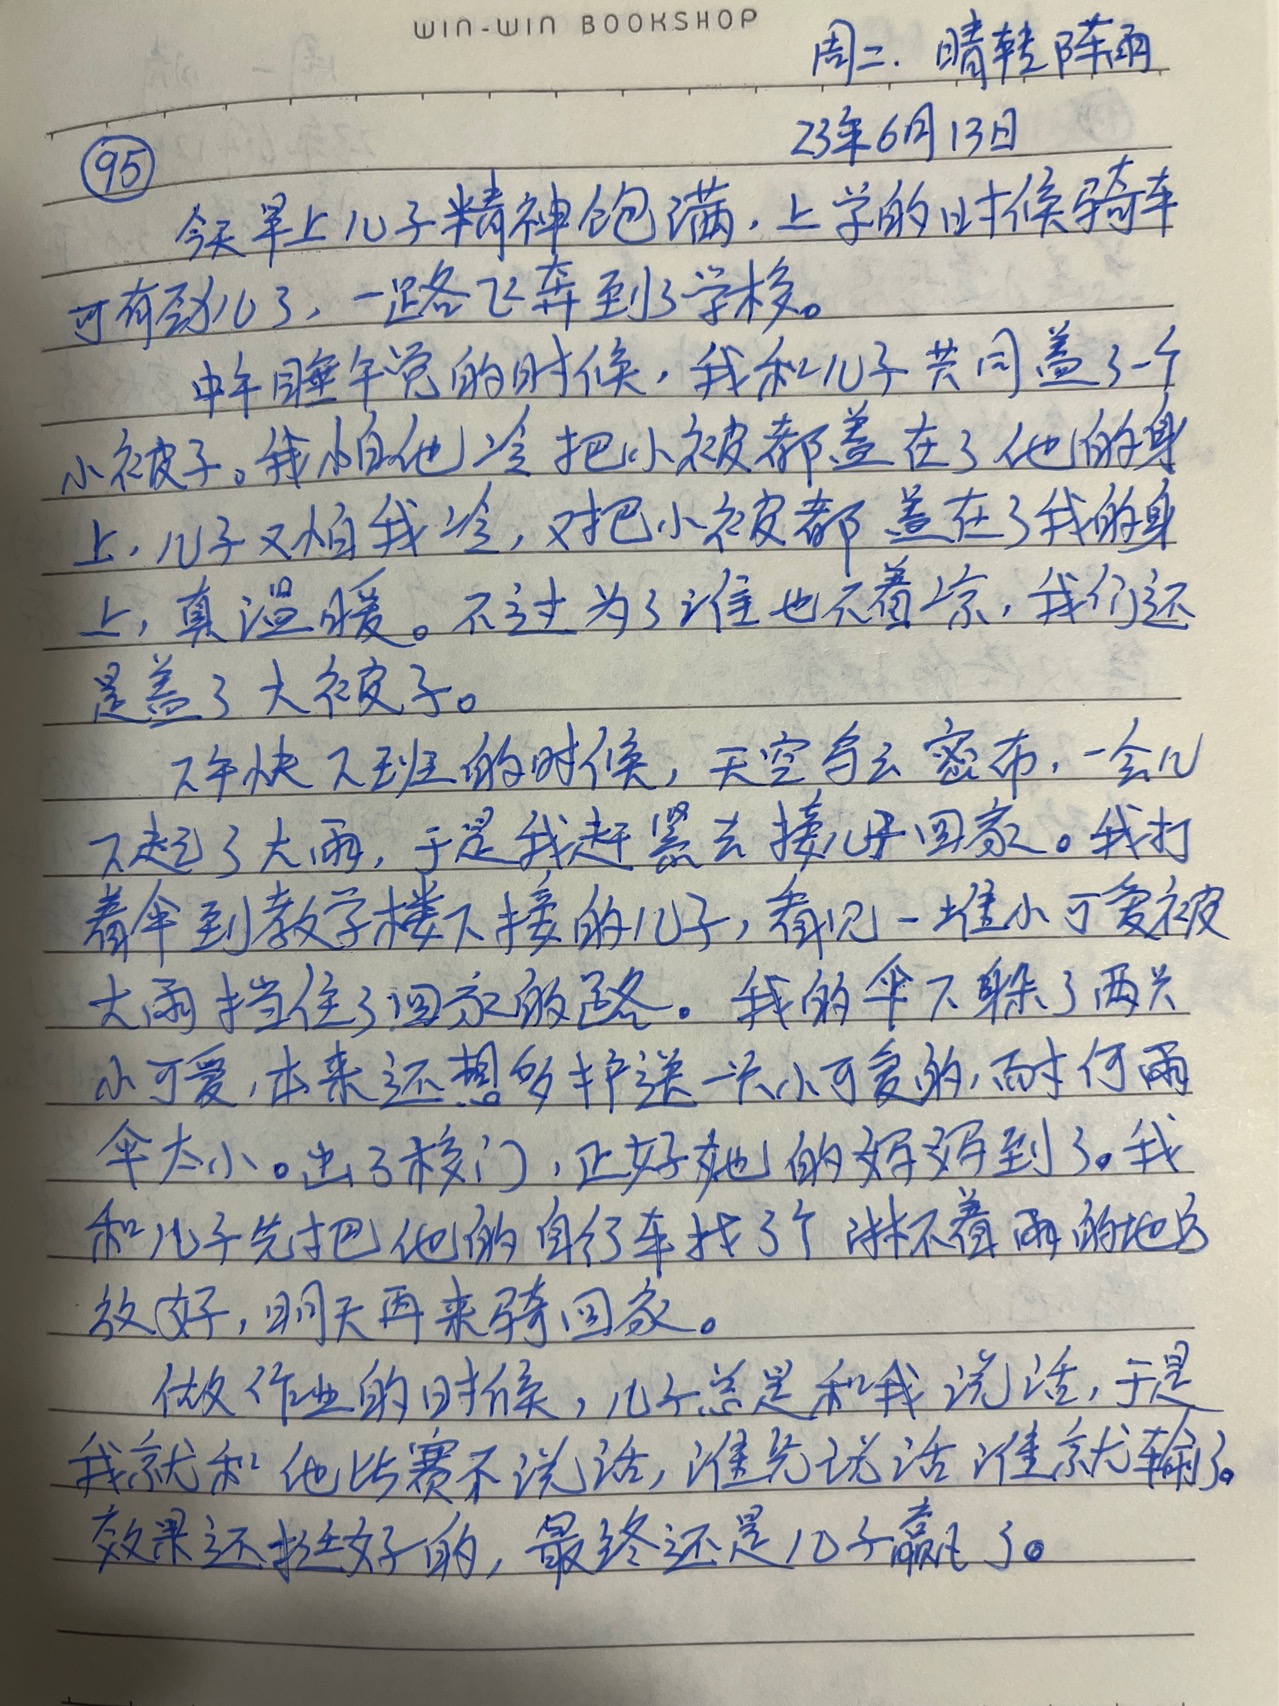 WIN-WIN BOOKSHOP
周二. 晴转阵雨
23年6月13日
95
今天早上儿子精神饱满，上学的时候骑车
可有劲儿了，一路飞奔到了学校。
中午睡午觉的时候，我和儿子共同盖了一个
小被子。我怕他冷把小被都盖在了他的身
上，儿子又怕我冷，又把小被都盖在了我的身
上，真温暖。不过为了谁也不着凉，我们还
是盖了大被子。
下午快下班的时候，天空乌云密布，一会儿
下起了大雨，于是我赶紧去接儿子回家。我打
着伞到教学楼下接的儿子，看见一堆小可爱被
大雨挡住了回家的路。我的伞下躲了两只
小可爱，本来还想多护送一只小可爱的，奈何雨
伞太小。出了校门，正好她的妈妈到了。我
和儿子先把他的自行车找了个淋不着雨的地方
放好，明天再来骑回家。
做作业的时候，儿子总是和我说话，于是
我就和他比赛不说话，谁先说话谁就输了。
效果还挺好的，最终还是儿子赢了。